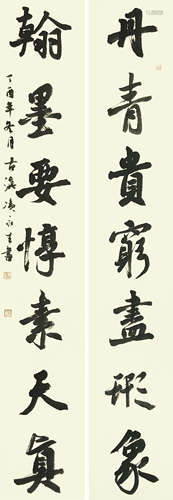 丹青貴窮盡形象
翰墨要惇素天真
丁酉年冬月古瀛